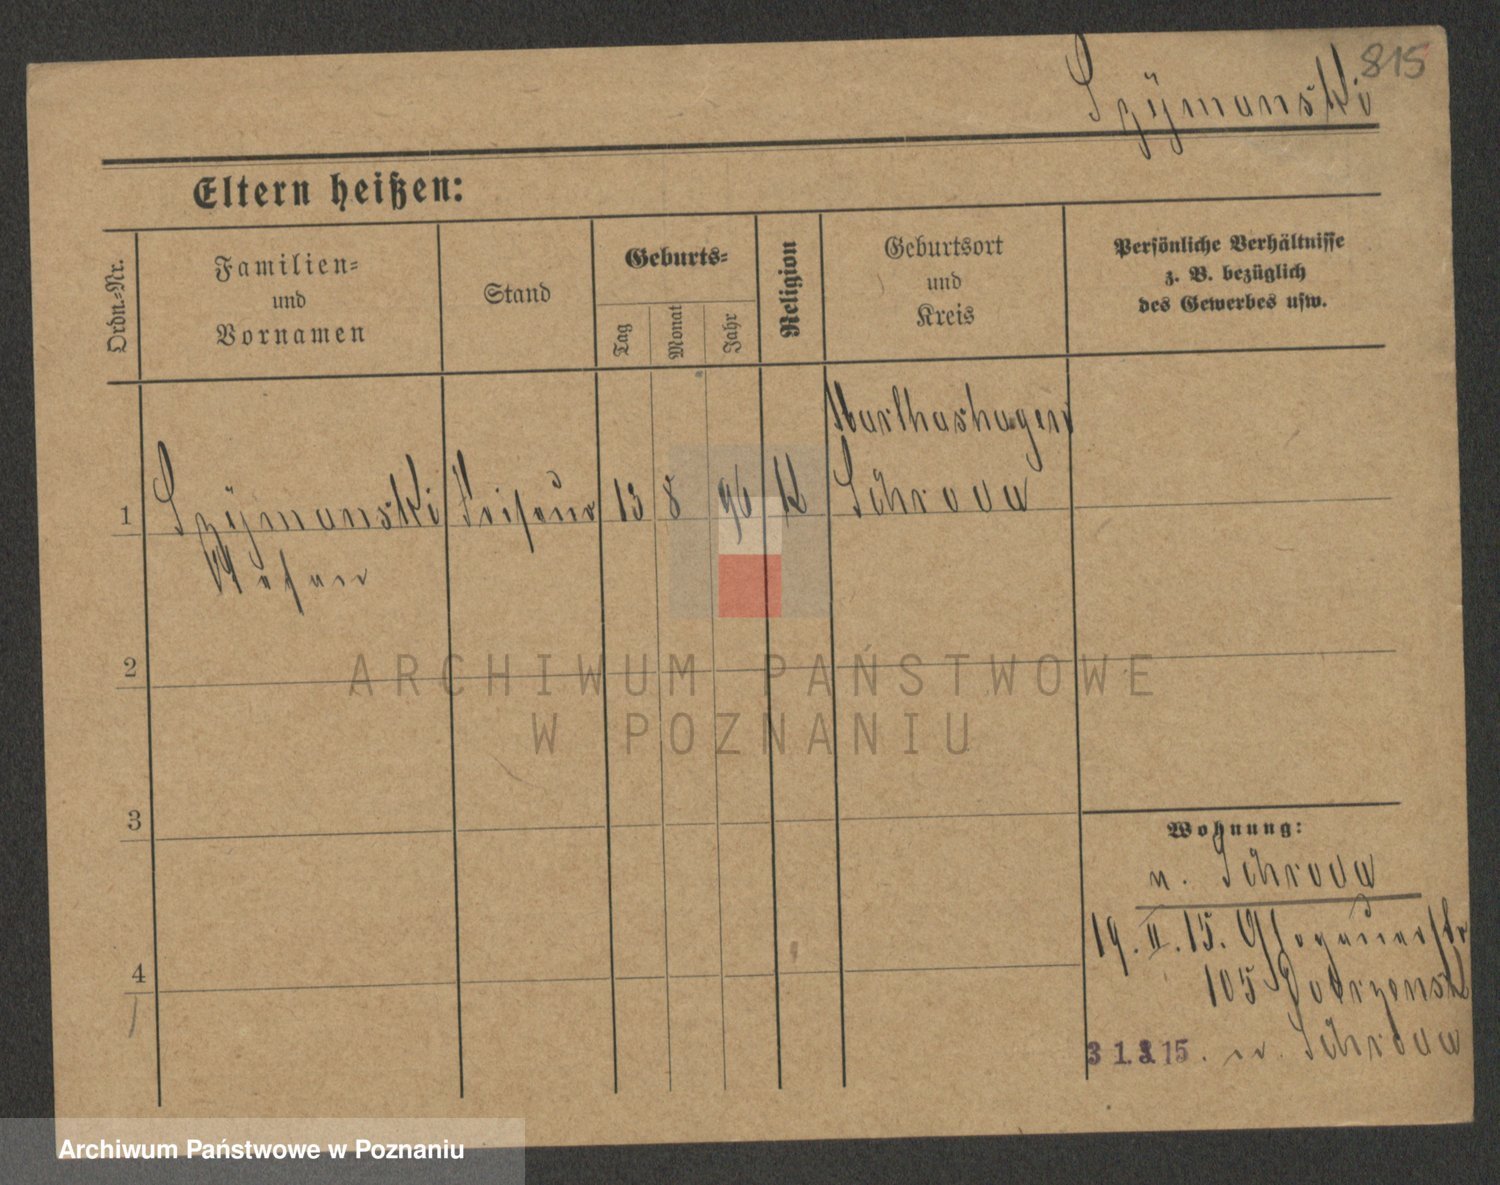 815
Szÿmanski
Eltern heißen:
Ordn.=Nr.
Familien=
und
Vornamen
Stand
Geburts=
Tag
Monat
Jahr
Religion
Geburtsort
und
Kreis
Persönliche Verhältnisse
z. B. bezüglich
des Gewerbes usw.
Marthashagen
1 Szÿmanski Friseur 13 8 96 K Schroda
Stefan
2
3
4
Wohnung:
n. Schroda
19. II. 15. Glogauerstr
105 Dobrzensk
31.3.15. n. Schroda
ARCHIWUM PAŃSTWOWE
W POZNANIU
Archiwum Państwowe w Poznaniu